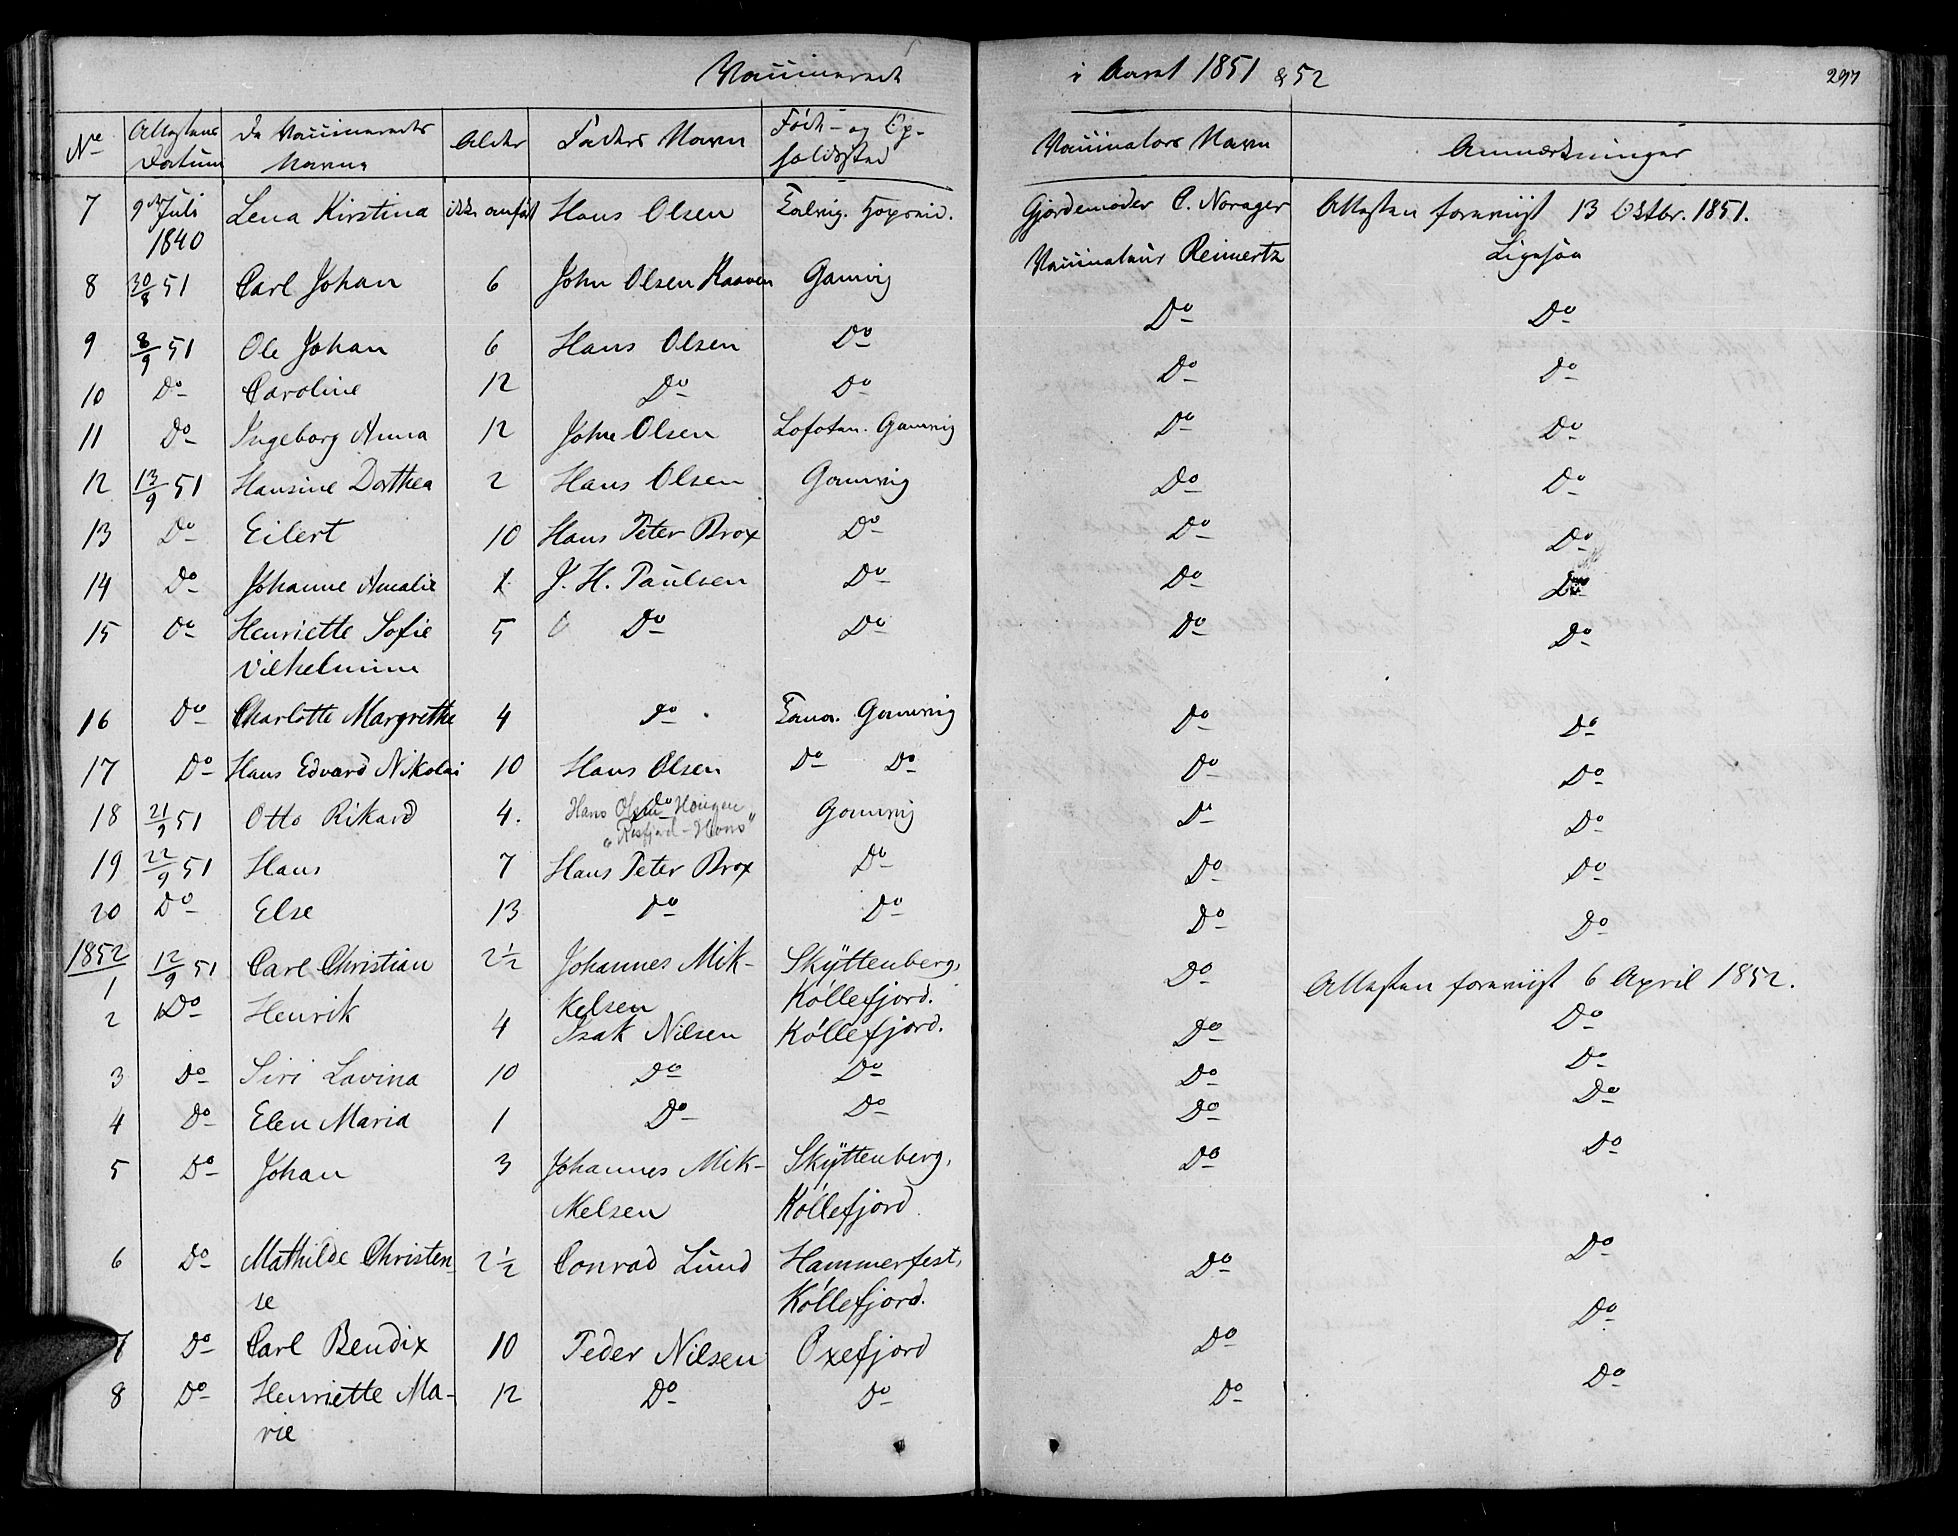 Vaccinerede i Aaret 1851 & 52 297
No Attestens Datum De Vaccineredes Navne Alder Faders Navn Føde- og Opholdssted Vaccinators Navn Anmærkninger
7 9de Juli 1840 Lena Kirstina ikke anført Hans Olsen Gjordemoder C. Norager Attesten foreviist 13 Octbr. 1851.
8 30/8 51 Carl Johan 6 John Olsen Kaaven Gamvig Vaccinateur Reinertz Ligesaa
9 8/9 51 Ole Johan 6 Hans Olsen Do Do Do
10 Do Caroline 12 Do Do Do Do
11 Do Ingeborg Anna 12 John Olsen Lofoten. Gamvig Do Do
12 13/9 51 Hansine Dorthea 2 Hans Olsen Gamvig Do Do
13 Do Eilert 10 Hans Peter Brox Do Do Do
14 Do Johanne Amalie 1 J. H. Paulsen Do Do Do
15 Do Henriette Sofie 5 Do Do Do Do
Vilhelmine
16 Do Charlotte Margrethe 4 Do Tanen. Gamvig Do Do
17 Do Hans Edvard Nikolai 10 Hans Olsen Do Do Do Do
18 21/9 51 Otto Rikard 4. Do Hans Olsen Haugen Gamvig Do Do
"Risfjord-Hans"
19 22/9 51 Hans 7 Hans Peter Brox Do Do Do
20 Do Else 13 Do Do Do Do
1852
1 12/9 51 Carl Christian 2 1/2 Johannes Mik- Skÿttenberg, Do Attesten foreviist 6 April 1852.
kelsen Køllefjord.
2 Do Henrik 4 Isak Nilsen Køllefjord. Do Do
3 Do Siri Lovina 10 Do Do Do Do
4 Do Elen Maria 1 Do Do Do Do
5 Do Johan 3 Johannes Mik- Skÿttenberg, Do Do
kelsen Køllefjord.
6 Do Mathilde Christen- 2 1/2 Conrad Lund Hammerfest, Do Do
se Køllefjord.
7 Do Carl Bendix 10 Peder Nilsen Oxefjord Do Do
8 Do Henriette Ma- 12 Do Do Do Do
rie